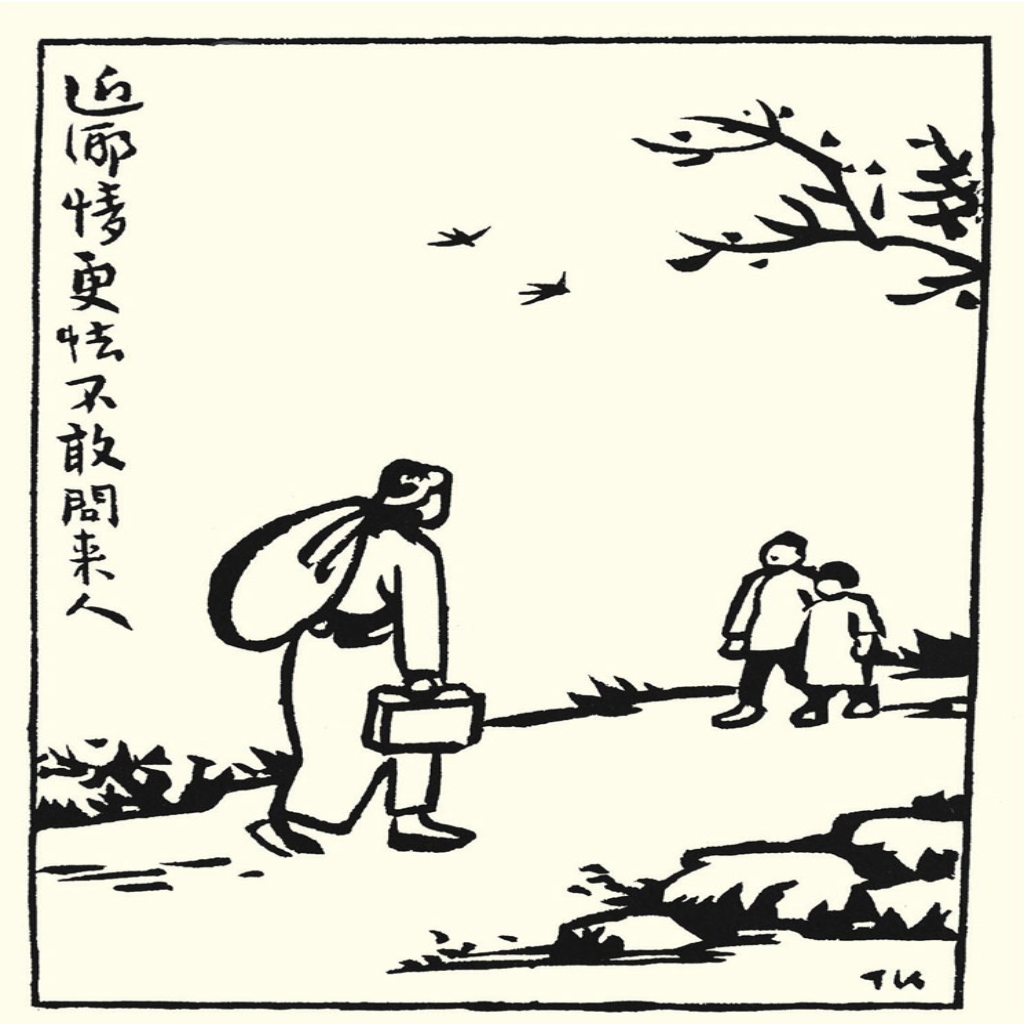 近鄉情更怯不敢問来人
TK